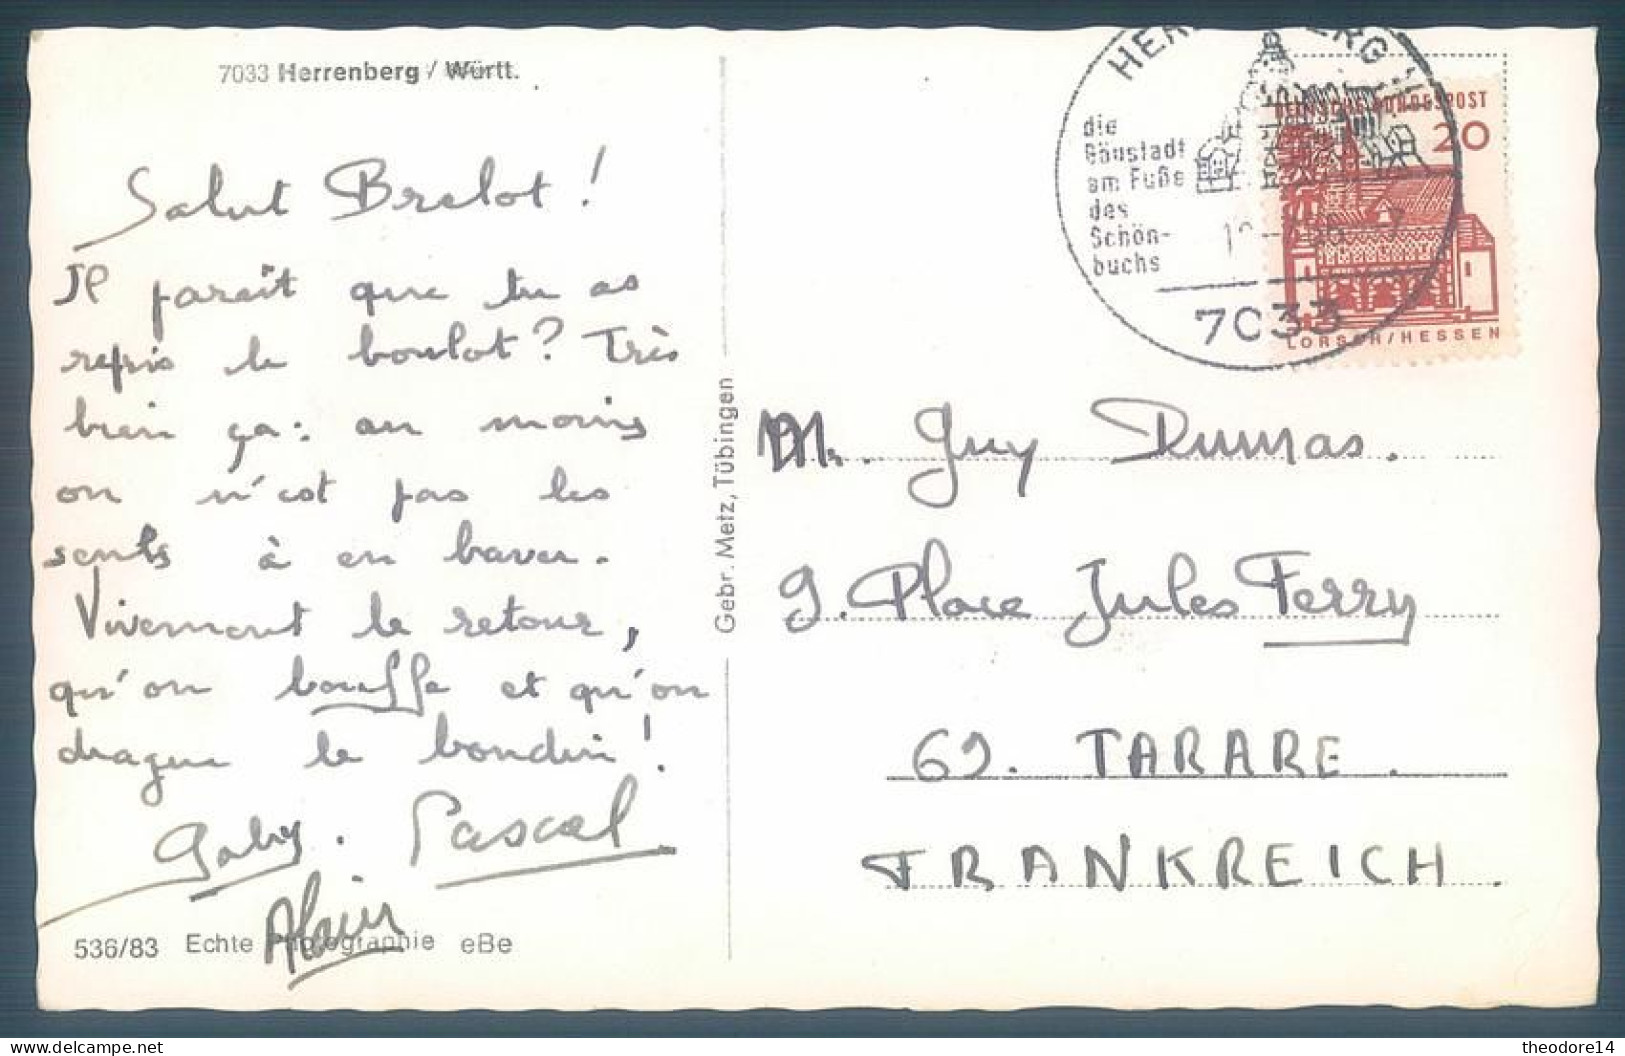 7033 Herrenberg / Württ.
Salut Brelot !
Il paraît que tu as
repris le boulot ? Très
bien ça : au moins
on n'est pas les
seuls à en baver.
Vivement le retour,
qu'on bouffe et qu'on
drague le boudin !
Gaby. Pascal
Alain
536/83 Echte Photographie eBe
Gebr. Metz, Tübingen
die
Gäustadt
am Fuße
des
Schön-
buchs
7033
DEUTSCHE BUNDESPOST
20
LORSCH/HESSEN
M. Guy Dumas.
9. Place Jules Ferry
69. TARARE.
FRANKREICH.
theodore14